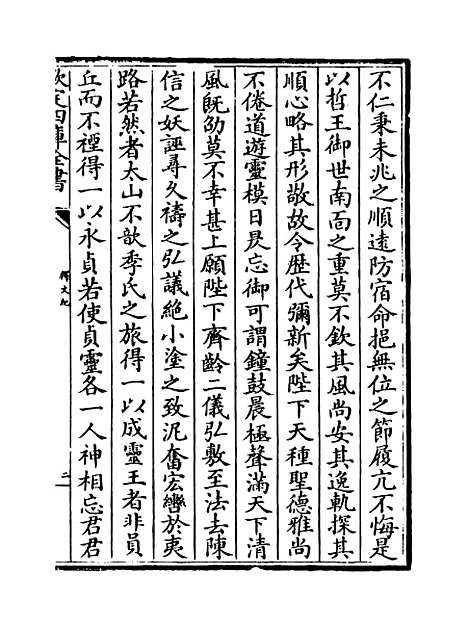 不仁秉未兆之順遠防宿命挹無位之節履亢不悔是
以哲王御世南面之重莫不欽其風尚安其逸軌探其
順心略其形敬故令歴代彌新矣陛下天種聖德雅尚
不倦道遊靈模日昃忘御可謂鐘鼓晨極聲滿天下清
風旣劭莫不幸甚上願陛下齊齡二儀弘敷至法去陳
信之妖誣尋久禱之弘議絶小塗之致泥奮宏轡於夷
路若然者太山不歆季氏之旅得一以成靈王者非員
丘而不禋得一以永貞若使貞靈各一人神相忘君君
欽定四庫全書
釋文紀
二